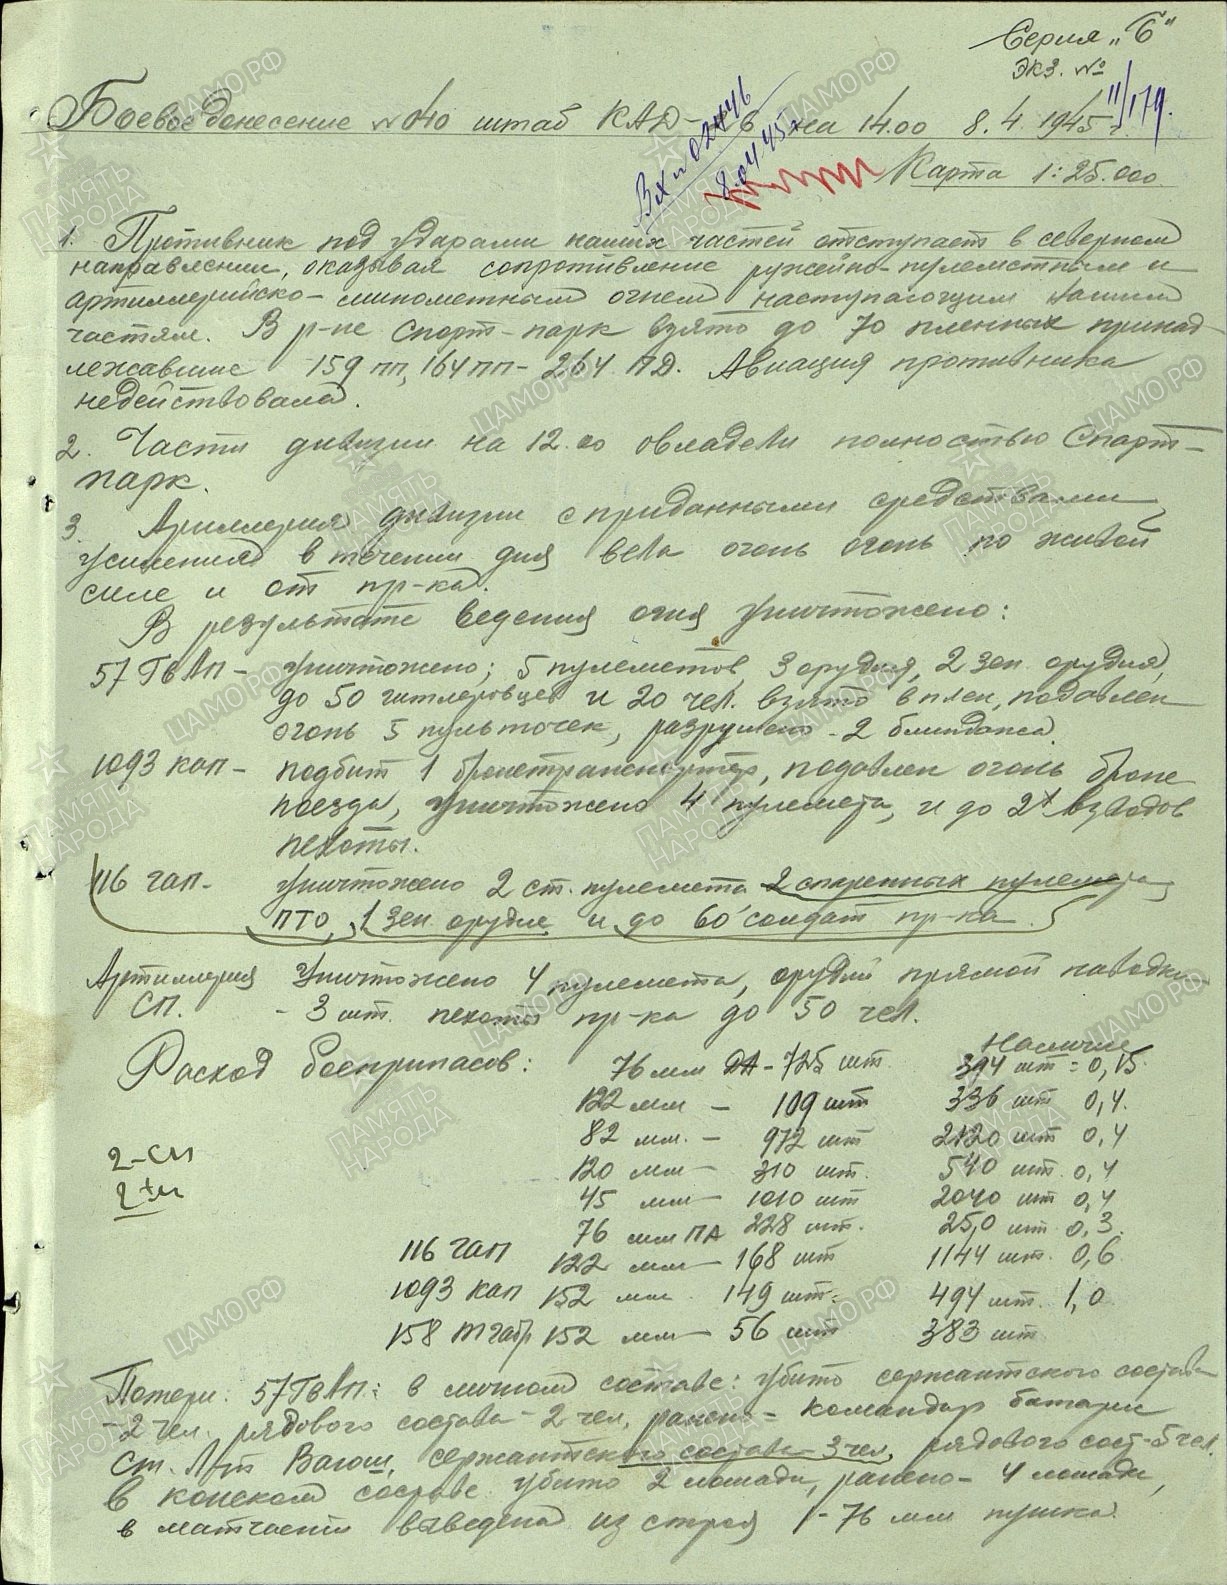 Серия „Б"
Экз. №
11/179.
Боевое донесение № 040 штаб КАД-6 на 14.00 8.4.1945 г.
Вх №
8.04.45г
Карта 1:25.000
1. Противник под ударами наших частей отступает в северном
направлении, оказывая сопротивление ружейно-пулеметным и
артиллерийско-минометным огнем наступающим нашим
частям. В р-не Спорт-парк взято до 70 пленных принад
лежавшие 159 пп, 164 пп - 264 ПД. Авиация противника
недействовала.
2. Части дивизии на 12.00 овладели полностью Спорт-
парк.
3. Ариллерия дивизии с приданными средствами
усиления в течении дня вела огонь огонь по живой
силе и от пр-ка.
В результате ведения огня уничтожено:
57 ГвАп - уничтожено; 5 пулеметов, 3 орудия, 2 зен. орудия,
до 50 гитлеровцев и 20 чел. взято в плен, подавлен
огонь 5 пульточек, разрушено - 2 блиндажа.
1093 кап - подбит 1 бронетранспортер, подавлен огонь броне
поезда, уничтожено 4 пулемета, и до 2х взводов
пехоты.
116 гап - уничтожено 2 ст. пулемета 2 спаренных пулемета,
ПТО, 1 зен. орудие и до 60 солдат пр-ка.
Артиллерия уничтожено 4 пулемета, орудий прямой наводки
СП. - 3 шт. пехоты пр-ка до 50 чел.
Наличие
Расход боеприпасов: 76 мм ДА - 725 шт. 394 шт = 0,15.
122 мм - 109 шт 336 шт 0,4.
82 мм. - 972 шт 2120 шт 0,4
120 мм - 310 шт. 540 шт. 0,4
45 мм - 1010 шт 2040 шт 0,4
76 мм ПА 228 шт. 25,0 шт 0,3.
116 гап 122 мм - 168 шт 1144 шт. 0,6
1093 кап 152 мм. 149 шт. 494 шт. 1,0
158 тгабр 152 мм - 56 шт 383 шт
2-сп
Потери: 57 ГвАп: в личном составе: убито сержантского состава
- 2 чел. рядового состава - 2 чел, ранено - командир батареи
Ст. Л-т сержантского состава - 3 чел, рядового сост - 5 чел.
В конском составе убито 2 лошади, ранено - 4 лошади,
в матчасти выведена из строя 1 - 76 мм пушка.
ПАМЯТЬ НАРОДА
ЦАМО РФ